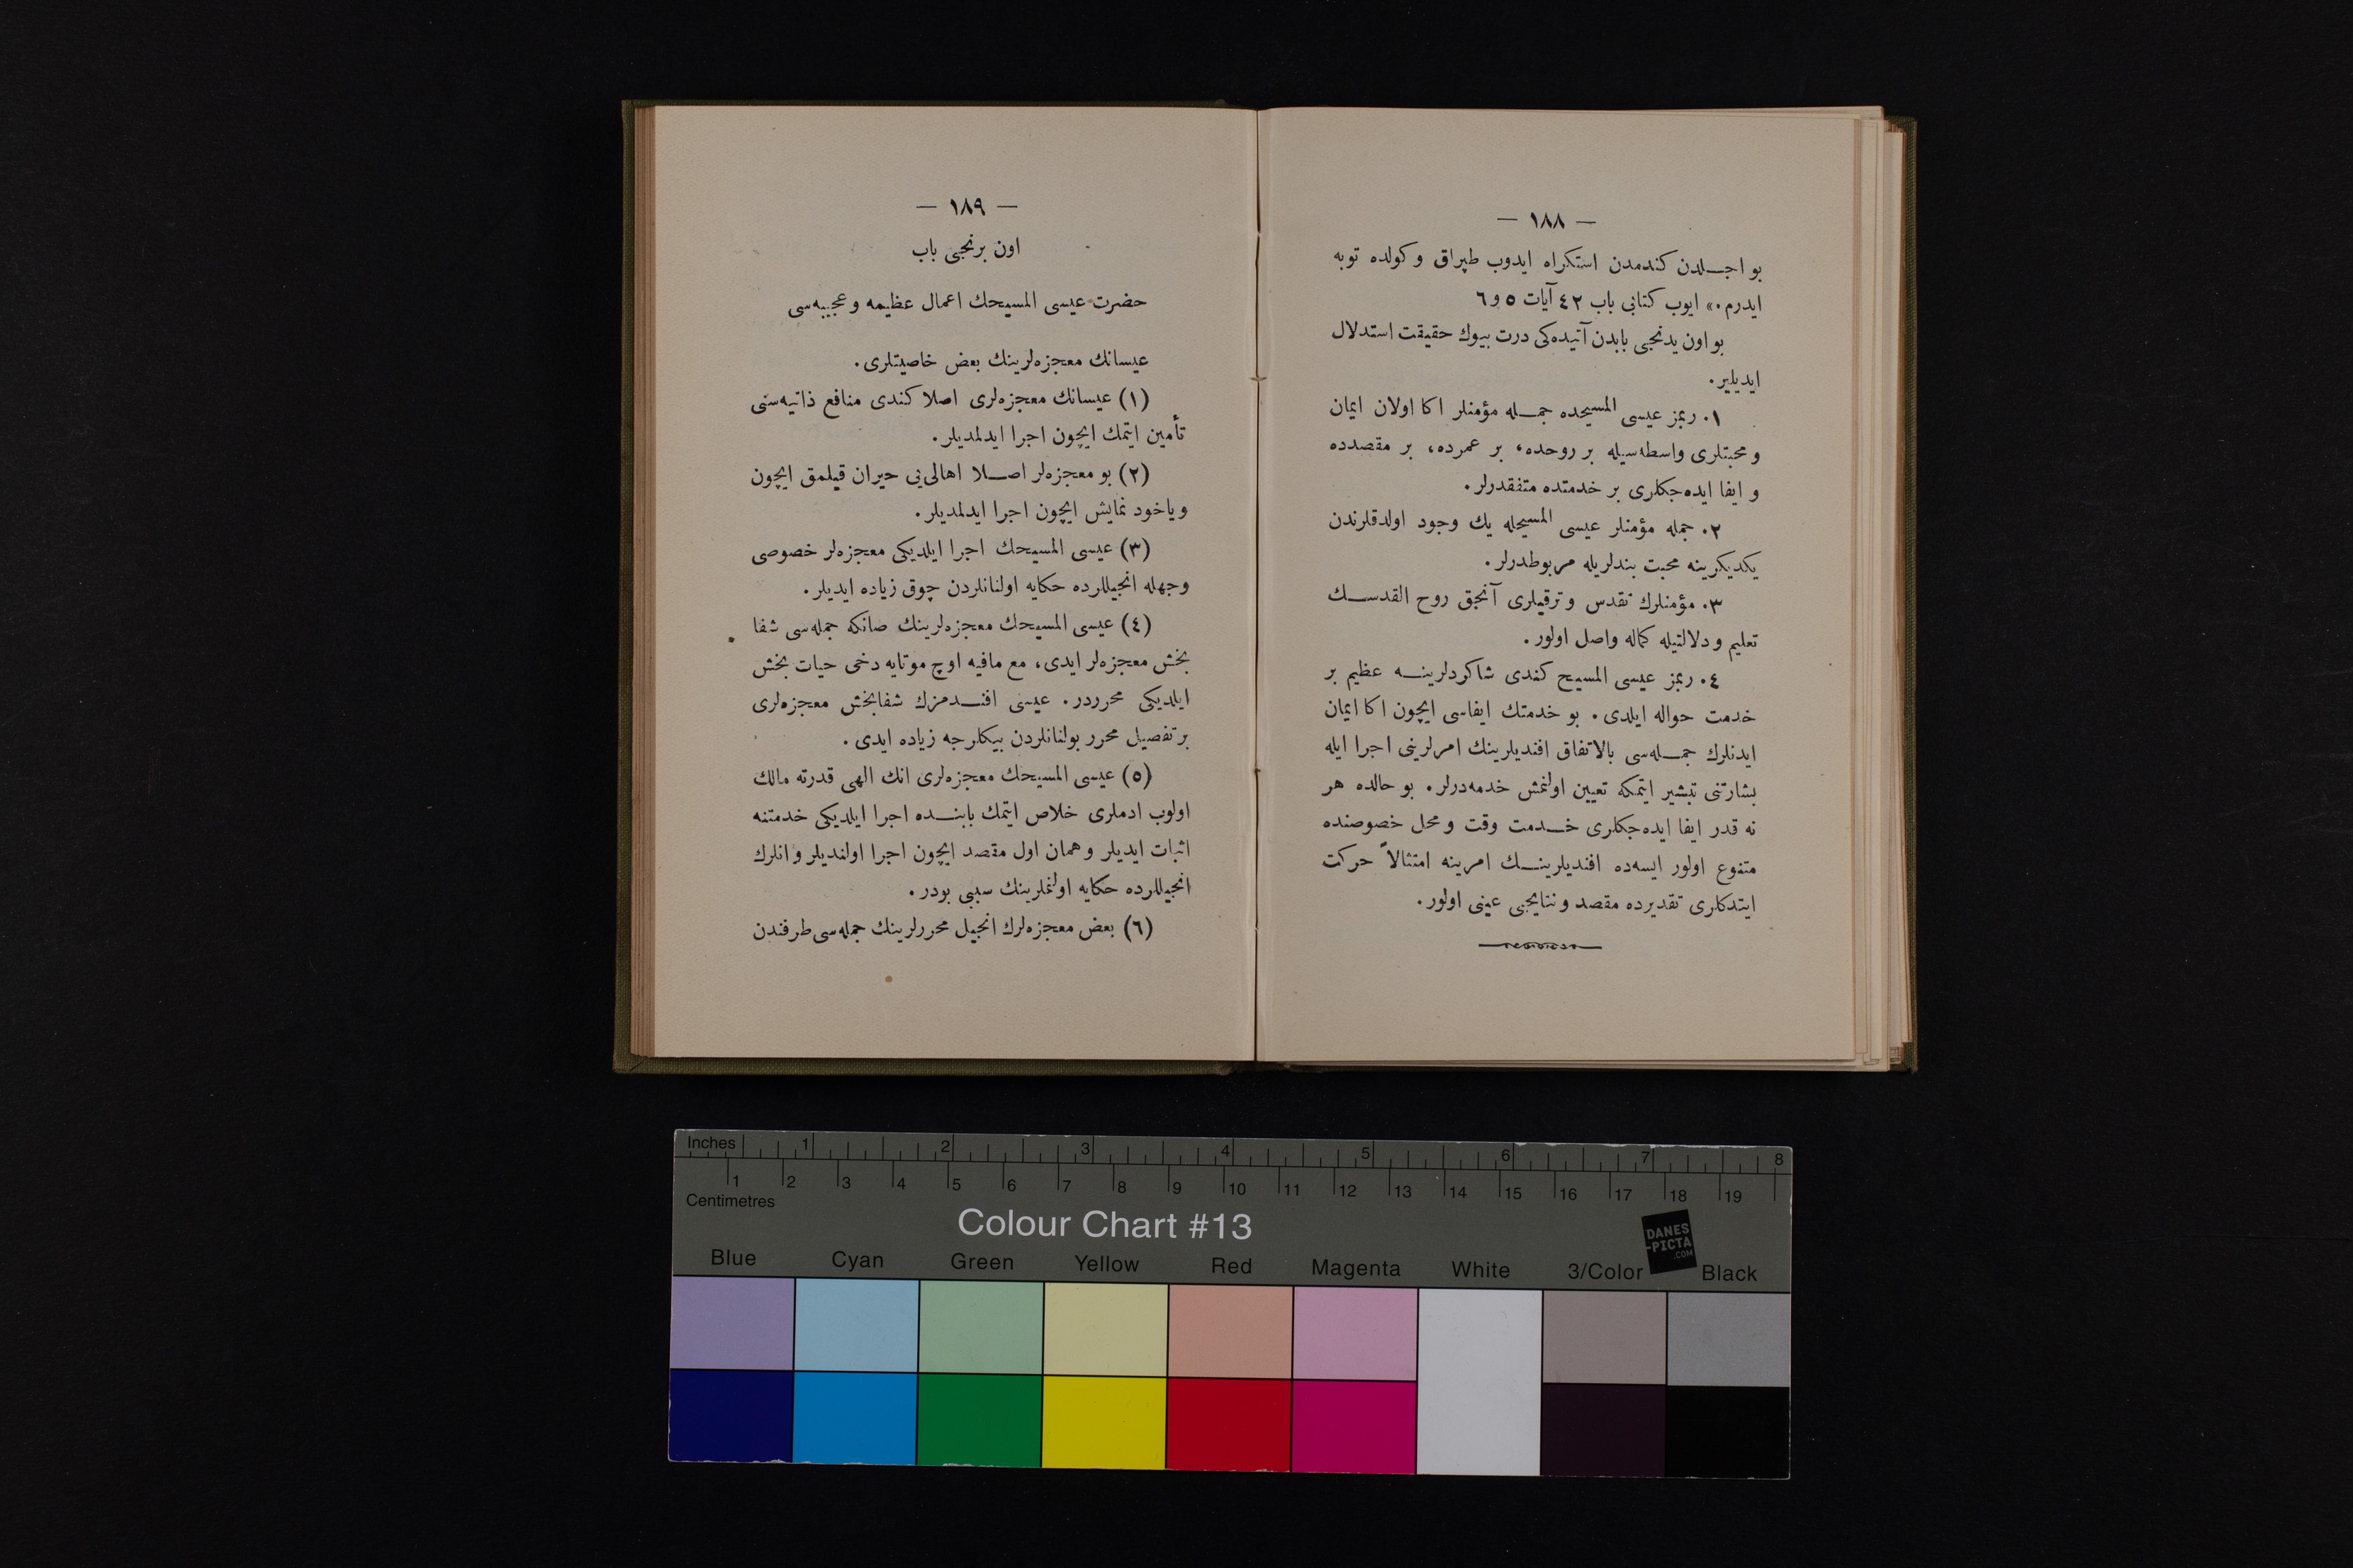 — ١٨٨ —
بو اجــلدن كندمدن استكراه ايدوب طپراق و كولده توبه
ايدرم.» ايوب كتابى باب ٤٢ آيات ٥ و ٦
بو اون يدنجى بابدن آتيده‌كى درت بيوك حقيقت استدلال
ايديلير.
١. ربمز عيسى المسيحده جمــله مؤمنلر اكا اولان ايمان
و محبتلرى واسطه‌سيله بر روحده، بر عمرده، بر مقصدده
و ايفا ايده‌جكلرى بر خدمتده متفقدرلر.
٢. جمله مؤمنلر عيسى المسيحله يك وجود اولدقلرندن
يكديكرينه محبت بندلريله مربوطدرلر.
٣. مؤمنلرك تقدس و ترقيلرى آنجق روح القدســك
تعليم و دلالتيله كماله واصل اولور.
٤. ربمز عيسى المسيح كندى شاكردلرينــه عظيم بر
خدمت حواله ايلدى. بو خدمتك ايفاسى ايچون اكا ايمان
ايدنلرك جمــله‌سى بالاتفاق افنديلرينك امرلرينى اجرا ايله
بشارتنى تبشير ايتمكه تعيين اولنمش خدمه‌درلر. بو حالده هر
نه قدر ايفا ايده‌جكلرى خــدمت وقت و محل خصوصنده
متنوع اولور ايسه‌ده افنديلرينــك امرينه امتثالاً حركت
ايتدكلرى تقديرده مقصد و نتايجى عينى اولور.
— ١٨٩ —
اون برنجى باب
حضرت عيسى المسيحك اعمال عظيمه و عجيبه‌سى
عيسانك معجزه‌لرينك بعض خاصيتلرى.
(١) عيسانك معجزه‌لرى اصلا كندى منافع ذاتيه‌سنى
تأمين ايتمك ايچون اجرا ايدلمديلر.
(٢) بو معجزه‌لر اصــلا اهالى‌يى حيران قيلمق ايچون
و ياخود نمايش ايچون اجرا ايدلمديلر.
(٣) عيسى المسيحك اجرا ايلديكى معجزه‌لر خصوصى
وجهله انجيللرده حكايه اولنانلردن چوق زياده ايديلر.
(٤) عيسى المسيحك معجزه‌لرينك صانكه جمله‌سى شفا
بخش معجزه‌لر ايدى، مع مافيه اوچ موتايه دخى حيات بخش
ايلديكى محرردر. عيسى افنــدمزك شفابخش معجزه‌لرى
بر تفصيل محرر بولنانلردن بيكلرجه زياده ايدى.
(٥) عيسى المسيحك معجزه‌لرى انك الهى قدرته مالك
اولوب ادملرى خلاص ايتمك بابنــده اجرا ايلديكى خدمتنه
اثبات ايديلر و همان اول مقصد ايچون اجرا اولنديلر و انلرك
انجيللرده حكايه اولنملرينك سببى بودر.
(٦) بعض معجزه‌لرك انجيل محررلرينك جمله‌سى طرفندن
Inches 1 2 3 4 5 6 7 8
1 2 3 4 5 6 7 8 9 10 11 12 13 14 15 16 17 18 19
Centimetres
Colour Chart #13
DANES
-PICTA
.COM
Blue Cyan Green Yellow Red Magenta White 3/Color Black